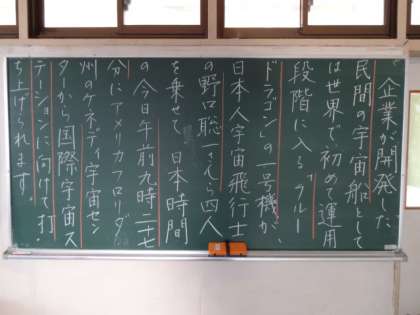 で、企業が開発した、
民間の宇宙船として
は世界で初めて運用
段階に入る「クルー
ドラゴン」の一号機が、
日本人宇宙飛行士
の野口聡一さんら四人
を乗せて、日本時間
の今日午前九時二十七
分にアメリカフロリダ
州のケネディ宇宙セン
ターから国際宇宙ス
テーションに向けて打・
ち上げられます。